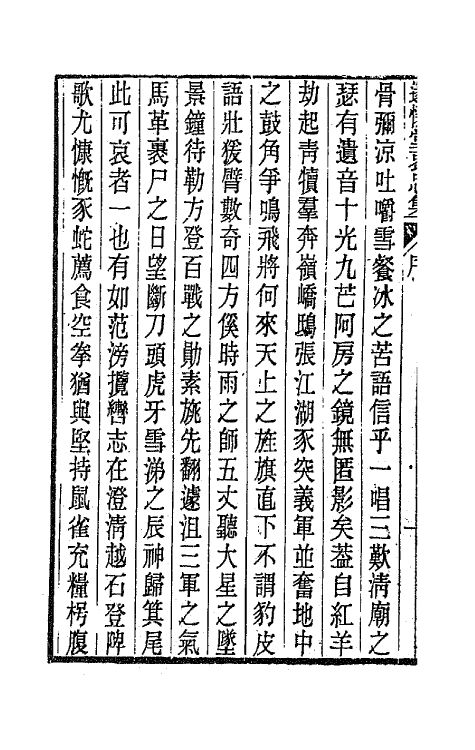 骨彌涼吐嚼雪餐冰之苦語信乎一唱三歎清廟之
瑟有遺音十光九芒阿房之鏡無匿影矣葢自紅羊
劫起靑犢羣奔嶺嶠鴟張江湖豕突義軍並奮地中
之鼓角爭鳴飛將何來天上之旌旗直下不謂豹皮
語壯猨臂數奇四方徯時雨之師五丈聽大星之墜
景鐘待勒方登百戰之勛素旐先翻遽沮三軍之氣
馬革裹尸之日望斷刀頭虎牙雪涕之辰神歸箕尾
此可哀者一也有如范滂攬轡志在澄淸越石登陴
歌尤慷慨豕蛇薦食空拳猶與堅持鼠雀充糧枵腹